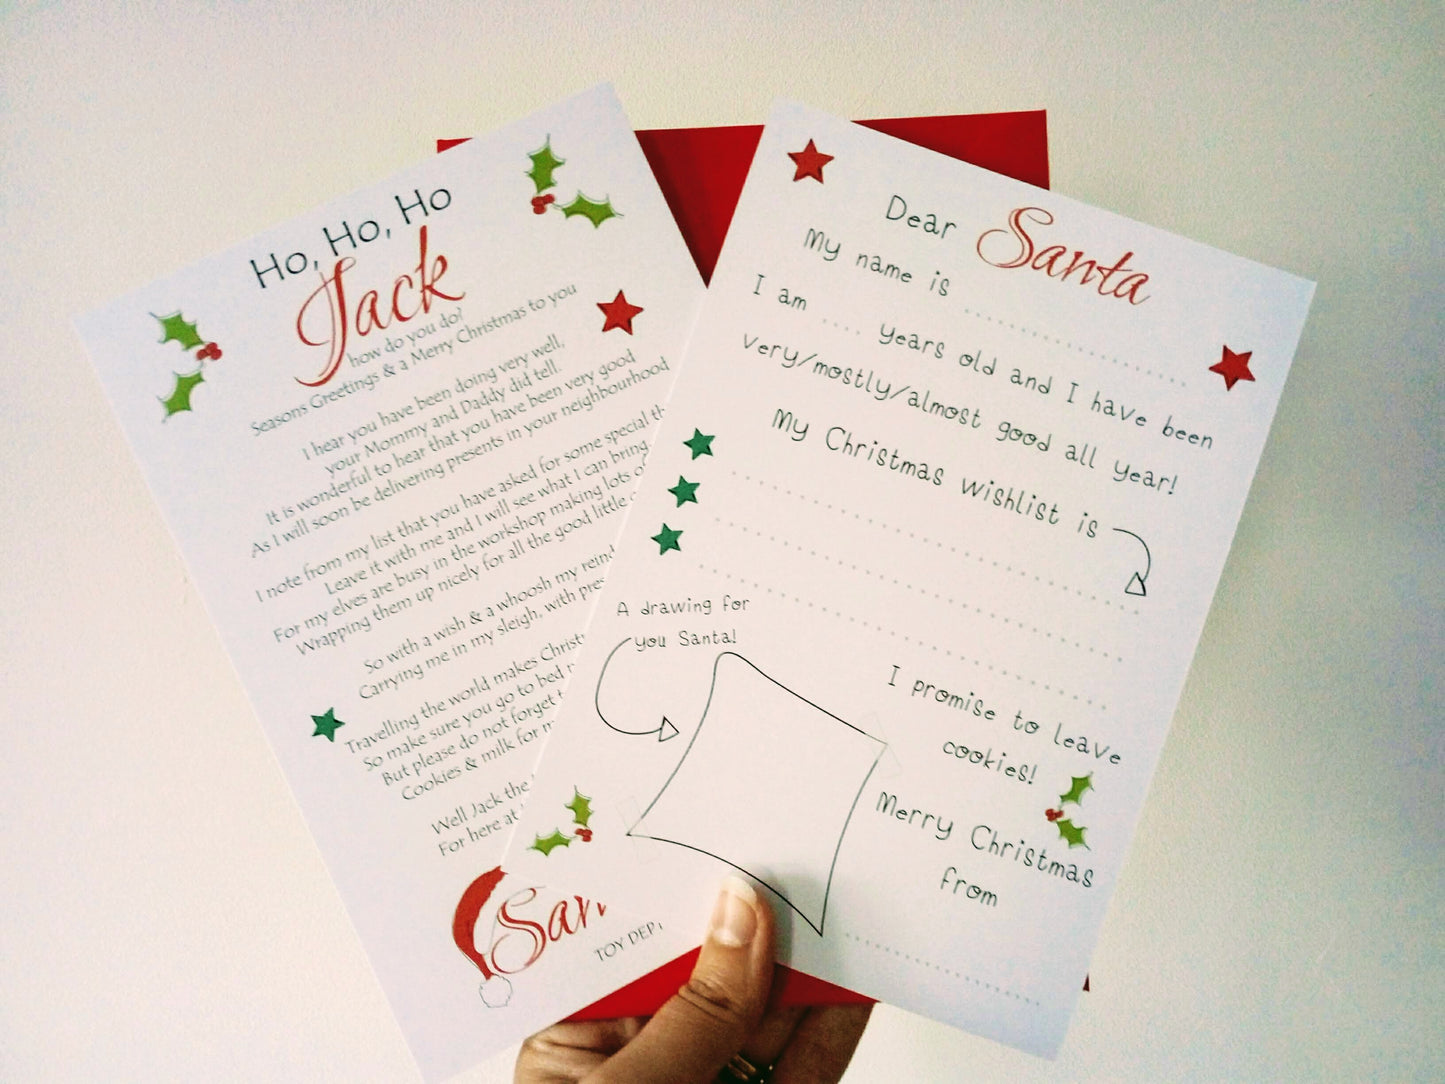 Ho, Ho, Ho
Jack
how do you do?
Seasons Greetings & a Merry Christmas to you
I hear you have been doing very well,
your Mommy and Daddy did tell.
It is wonderful to hear that you have been very good
As I will soon be delivering presents in your neighbourhood
I note from my list that you have asked for some special th
Leave it with me and I will see what I can bring.
For my elves are busy in the workshop making lots o
Wrapping them up nicely for all the good little
So with a wish & a whoosh my reind
Carrying me in my sleigh, with pres
Travelling the world makes Christ
So make sure you go to bed
But please do not forget t
Cookies & milk for m
Well Jack the
For here at
San
TOY DEP
Dear Santa
My name is ....................
I am .... years old and I have been
very/mostly/almost good all year!
My Christmas wishlist is
A drawing for
you Santa!
I promise to leave
cookies!
Merry Christmas
from